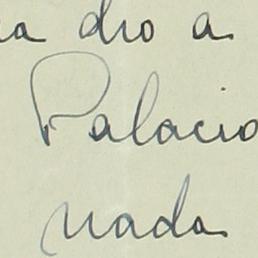 dio a
Palacio
nada